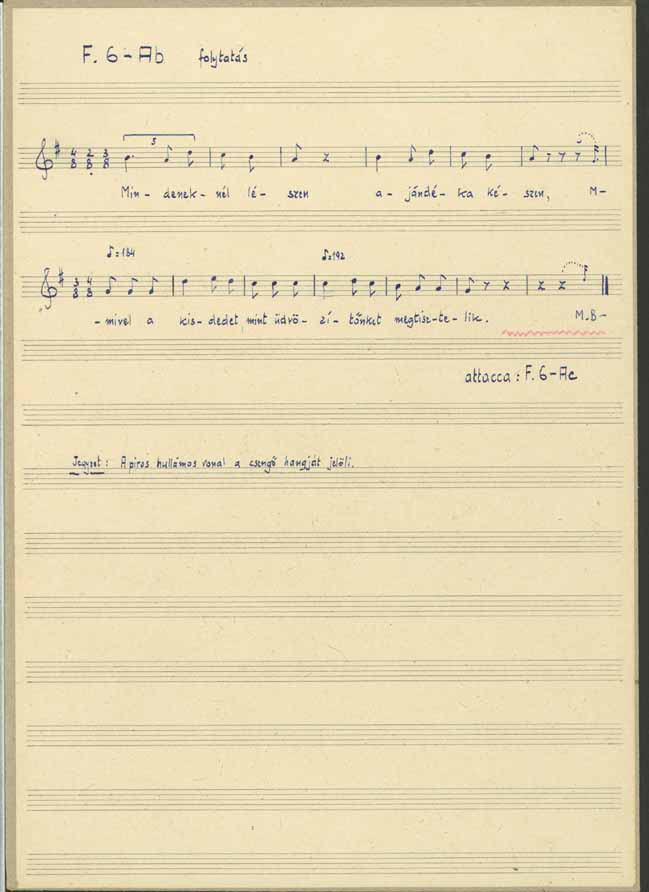 F. 6-Ab folytatás
4 2 3
8 8 8
5
Min- denek- nél lé- szen a- jándé- ka ké- szen, M-
♪=184 ♪=192
3 4
8 8
-mivel a kis-dedet mint üdvö- zí- tőnket megtisz-te- lik. M-B-
attacca : F. 6-Ac
Jegyzet : A piros hullámos vonal a csengő hangját jelöli.